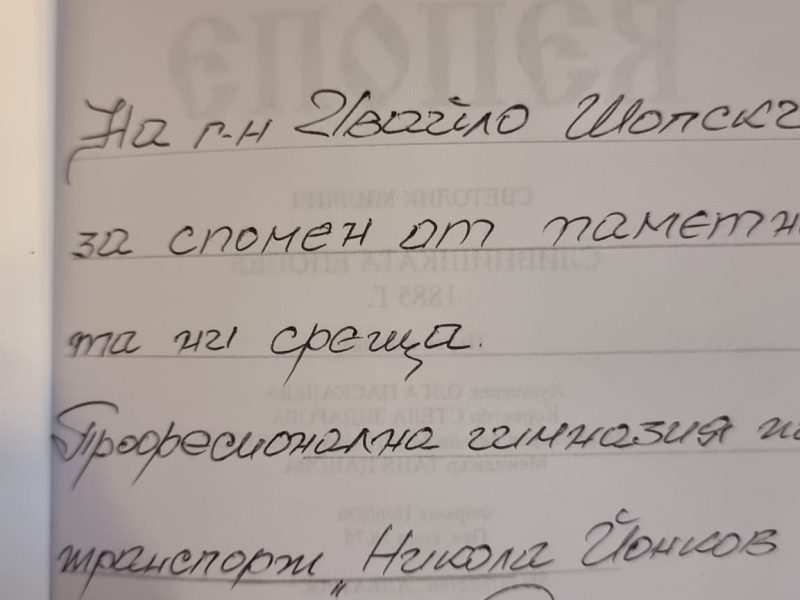 На г-н Ивайло Шопски
за спомен от паметн
та ни среща.
Професионална гимназия по
транспорт „Никола Йонков